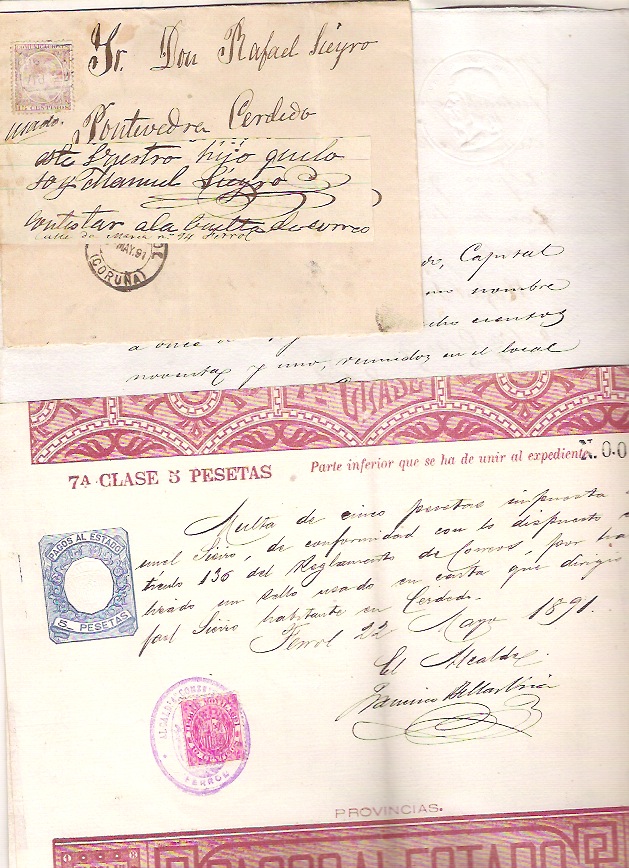 COMUNICACIONES
15 CENTIMOS
Sr. Don Rafael Sieyro
usado.
Pontevedra Cerdedo
este Vuestro hijo que lo
soy Manuel Sieyro
contstar ala buelta de correo
Calle de
Ferrol
MAY.91
(CORUÑA)
Capital
nombre
cientos
noventa y uno, reunidos en el local
7ª CLASE
7ª CLASE 5 PESETAS
Parte inferior que se ha de unir al expediente
N. 0.0
PAGOS AL ESTADO
5 PESETAS
Multa de cinco pesetas impuesta
nuel Sieiro, de conformidad con lo dispuesto
tículo 136 del Reglamento de Correos, por ha
lizado un sello usado en carta que dirigió
fael Sieiro habitante en Cerdedo.
Ferrol 22 Mayo 1891.
El Alcalde
ALCALDIA
FERROL
PROVINCIAS.
PAGOS AL ESTADO